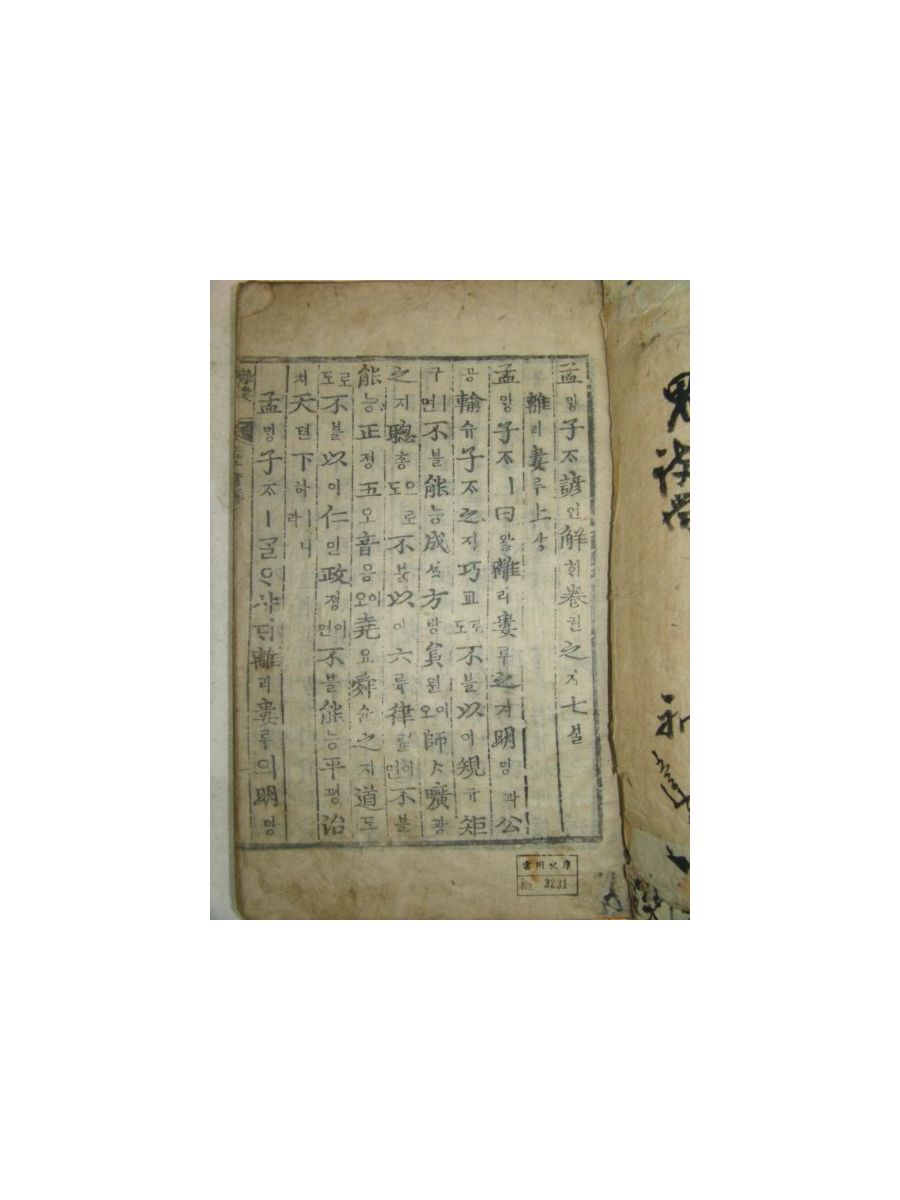 孟ᄆᆡᆼ子ᄌᆞ諺언解ᄒᆡ卷권之지七칠
離리婁루上샹
孟ᄆᆡᆼ子ᄌᆞㅣ曰왈離리婁루之지明명과公
공輸슈子ᄌᆞ之지巧교로도不블以이規규矩
구ㅣ면不블能능成셩方방員원이오師ᄉᆞ曠광
之지聰총으로도不블以이六륙律률이면不블
能능正졍五오音음이오堯요舜슌之지道도
로도不블以이仁인政졍이면不블能능平평治
치天텬下하ㅣ니라
孟ᄆᆡᆼ子ᄌᆞㅣᄀᆞᆯᄋᆞ샤ᄃᆡ離리婁루의明명
離婁
No. 3231